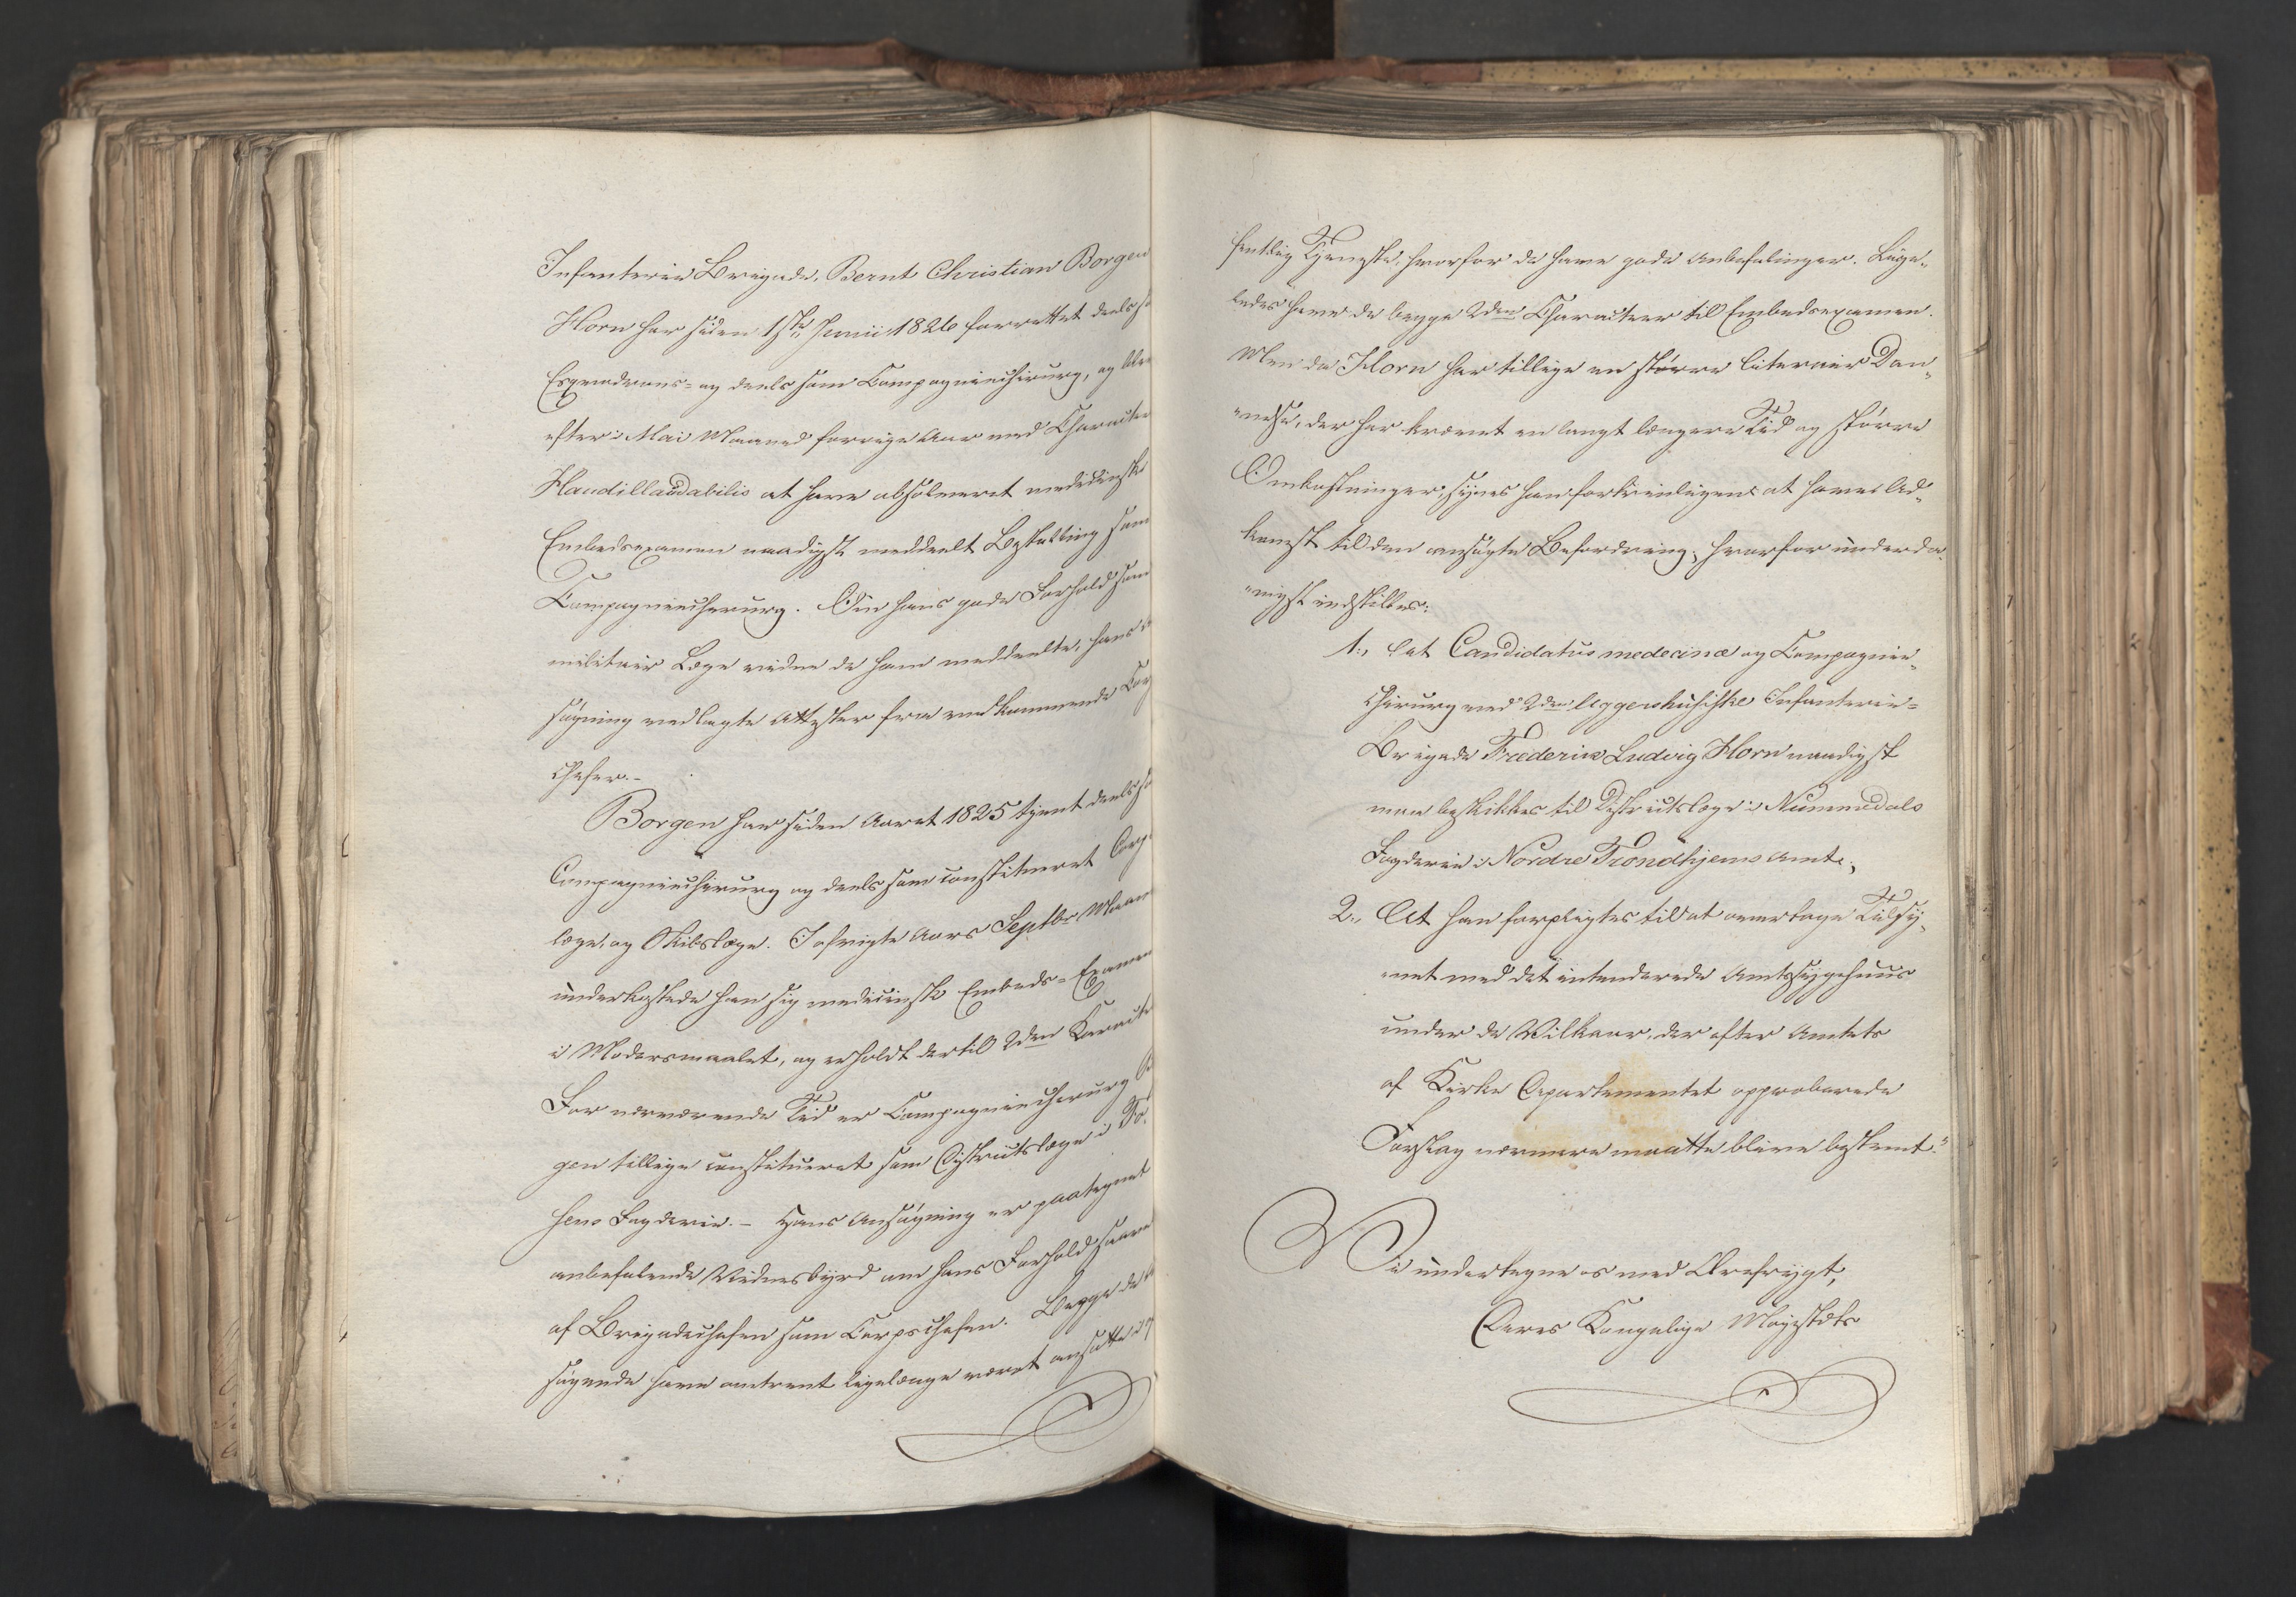 Infanterie Brigade, Bernt Christian Borgen
Horn har siden 1ste Junii 1826 forrettet deels s
Esqvadrons- og deels som Compagniechirurg, og blev
efter i Mai Maaned forrige Aar med Character
Haudillaudabilis at have absolveret medicinsk
Embedsexamen naadigst meddeelt Bestalling som
Compagniechirurg. Om hans gode Forhold som
militair Læge vidne de ham meddeelte, hans
søgning vedlagte Attester fra vedkommende Cor
chefer.-
Borgen har siden Aaret 1825 tjent deels s
Compagniechirurg og deels som constitueret Corps
læge, og Skibslæge. I afvigte Aars Septbr Maan
underkastede han sig medicinsk Embeds-Examen
i Modersmaalet, og erholdt dertil 2den Karacte
For nærværende Tid er Compagniechirurg Bo
gen tillige constitueret som Districtslæge i Fo
sens Fogderie. - Hans Ansøgning er paategnet
anbefalende Vidnesbyrd om hans Forhold saave
af Brigadechefen som Corpschefen. Begge de
søgende have omtrent ligelænge været ansatte i
fentlig Tjeneste, hvorfor de have gode Anbefalinger. Lige„
ledes have de begge 2den Character til Embedsexamen.
Men da Horn har tillige en større literair Dan„
„nelse, der har krævet en langt længere Tid og større
Omkostninger, synes han fortrinligens at have Ad„
komst til den ansøgte Befordring; hvorfor underda„
„nigst indstilles:
1., At Candidatus medecinæ og Compagnie„
chirurg ved 2den Aggershusiske Infanterie-
Brigade Fræderik Ludvig Horn naadigst
maa beskikkes til Districtslæge i Nummedals
Fogderie i Nordre Trondhjems Amt;
2., At han forpligtes til at overtage Tilsy„
„net med det intenderede Amtssygehuus
under de Vilkaar, der efter Amtets
af Kirke Departementet approberede
Forslag nærmere maatte blive bestemt."
Vi undertegne os med Ærefrygt,
Deres Kongelige Majestæts